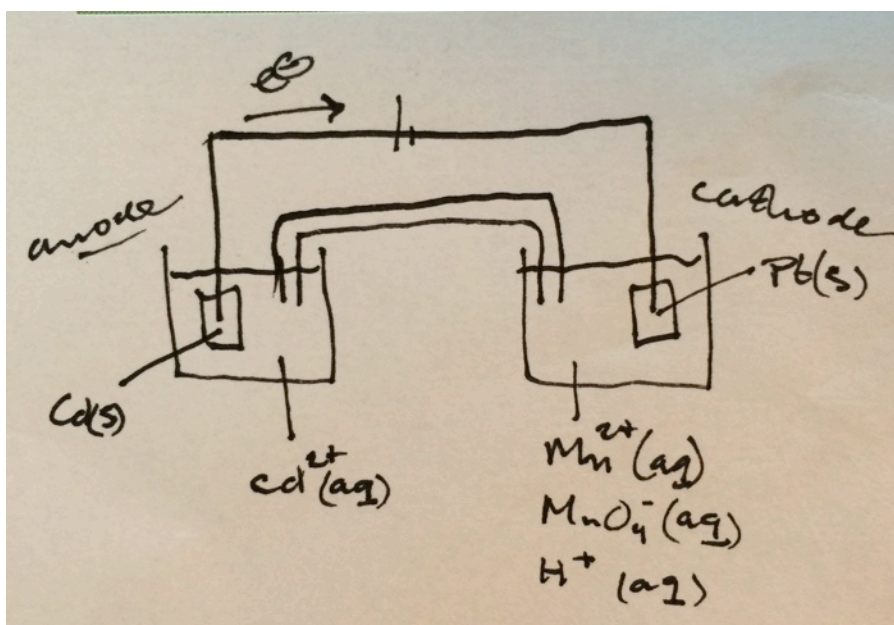 e⊖
anode
cathode
Pt(s)
Cd(s)
Cd²⁺(aq)
Mn²⁺(aq)
MnO₄⁻(aq)
H⁺(aq)